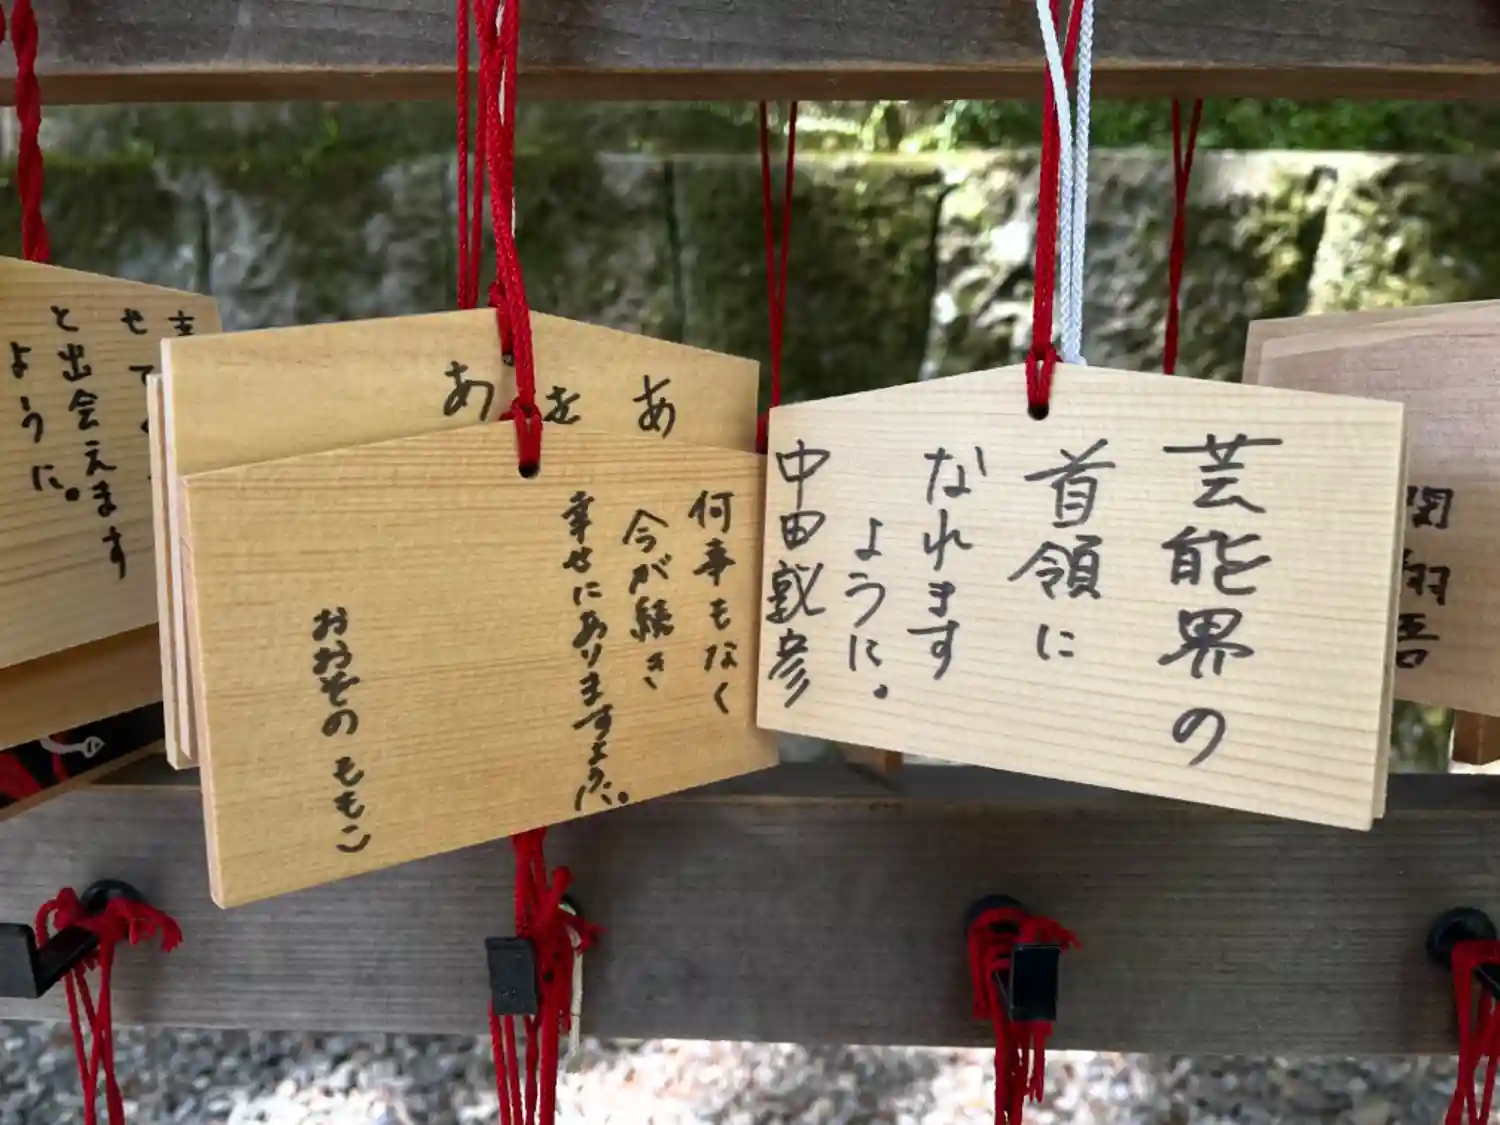 芸能界の
首領に
なれます
ように。
中田敦彦
何事もなく
今が続き
幸せにありますように。
おおぞの ももこ
あ
を
あ
せて
と出会えます
ように。